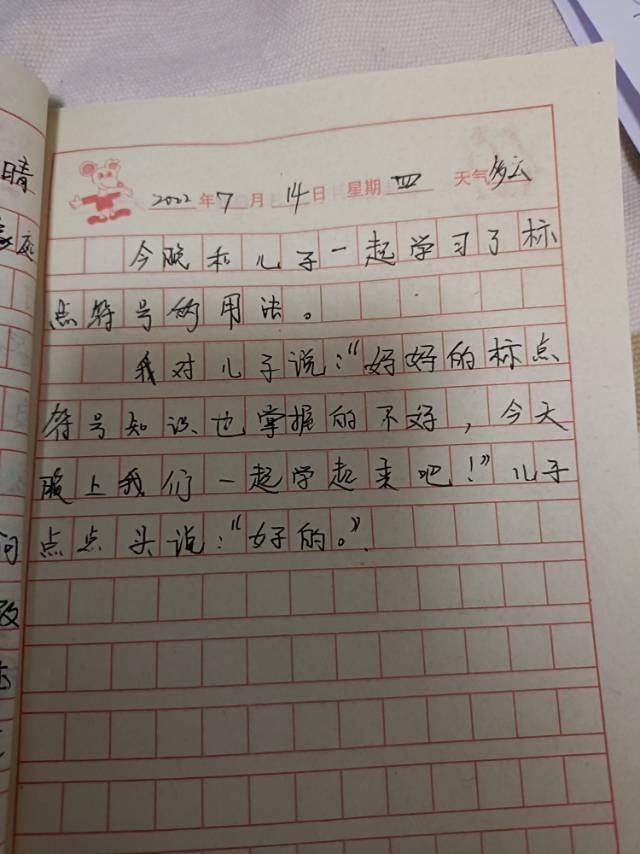 晴
问
2022年7月14日 星期四 天气多云
今晚和儿子一起学习了标
点符号的用法。
我对儿子说：“好好的标点
符号知识也掌握的不好，今天
晚上我们一起学起来吧！”儿子
点点头说：“好的。”